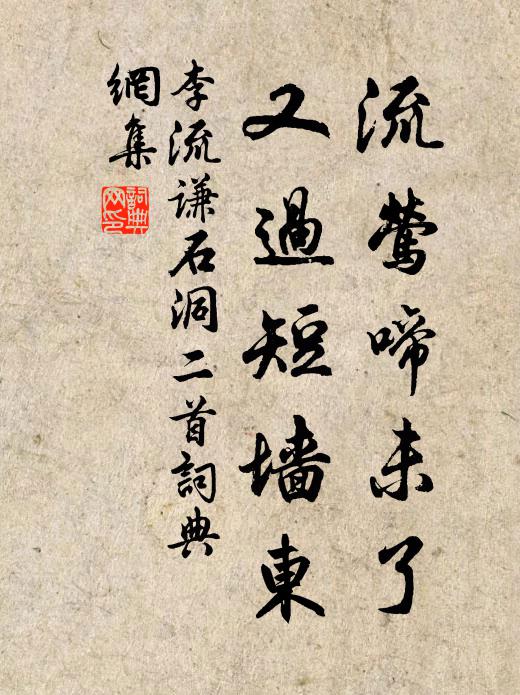 流鶯啼未了
又過短墻東
李流謙石洞二首詞典
網集
詞典
网印